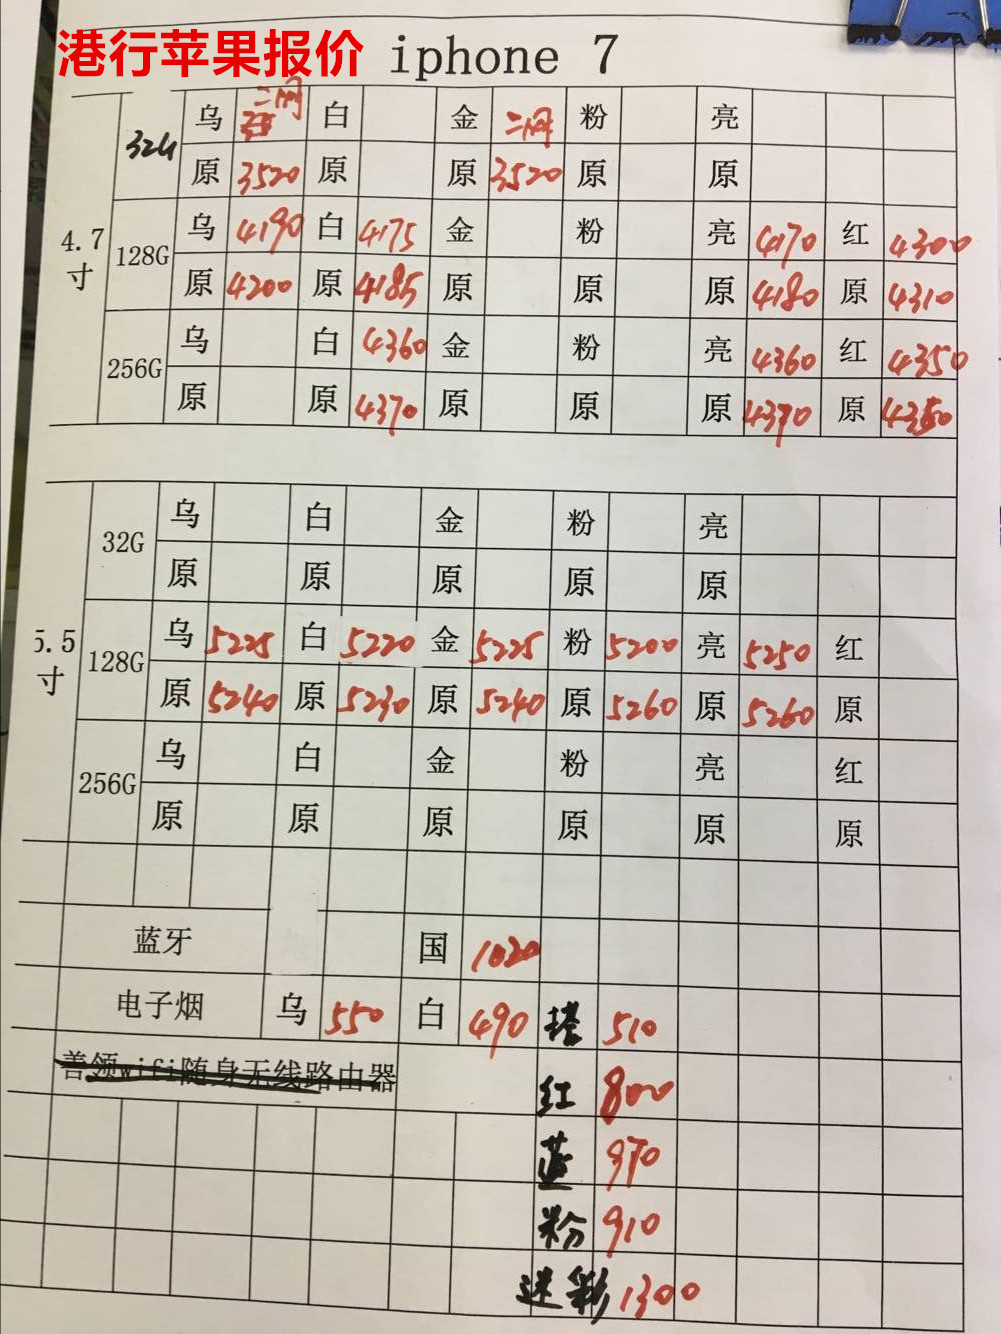 港行苹果报价 iphone 7
32G 乌 二网 白 金 二网 粉 亮
原 3520 原 原 3520 原 原
4.7寸 128G 乌 4190 白 4175 金 粉 亮 4170 红 4300
原 4200 原 4185 原 原 原 4180 原 4310
256G 乌 白 4360 金 粉 亮 4360 红 4350
原 原 4370 原 原 原 4370 原
32G 乌 白 金 粉 亮
原 原 原 原 原
5.5寸 128G 乌 5225 白 5220 金 5225 粉 5200 亮 5250 红
原 5240 原 5230 原 5240 原 5260 原 5260 原
256G 乌 白 金 粉 亮 红
原 原 原 原 原 原
蓝牙 国 1020
电子烟 乌 550 白 490 510
善领wifi随身无线路由器
红 800
蓝 970
粉 910
迷彩 1300